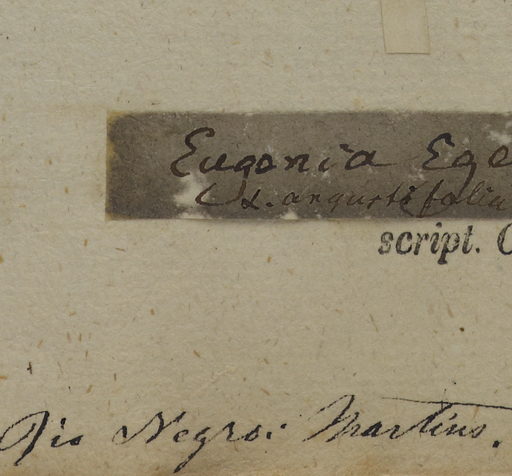 Eugenia Ege
α. angustifolia
script. C
Rio Negro: Martius.